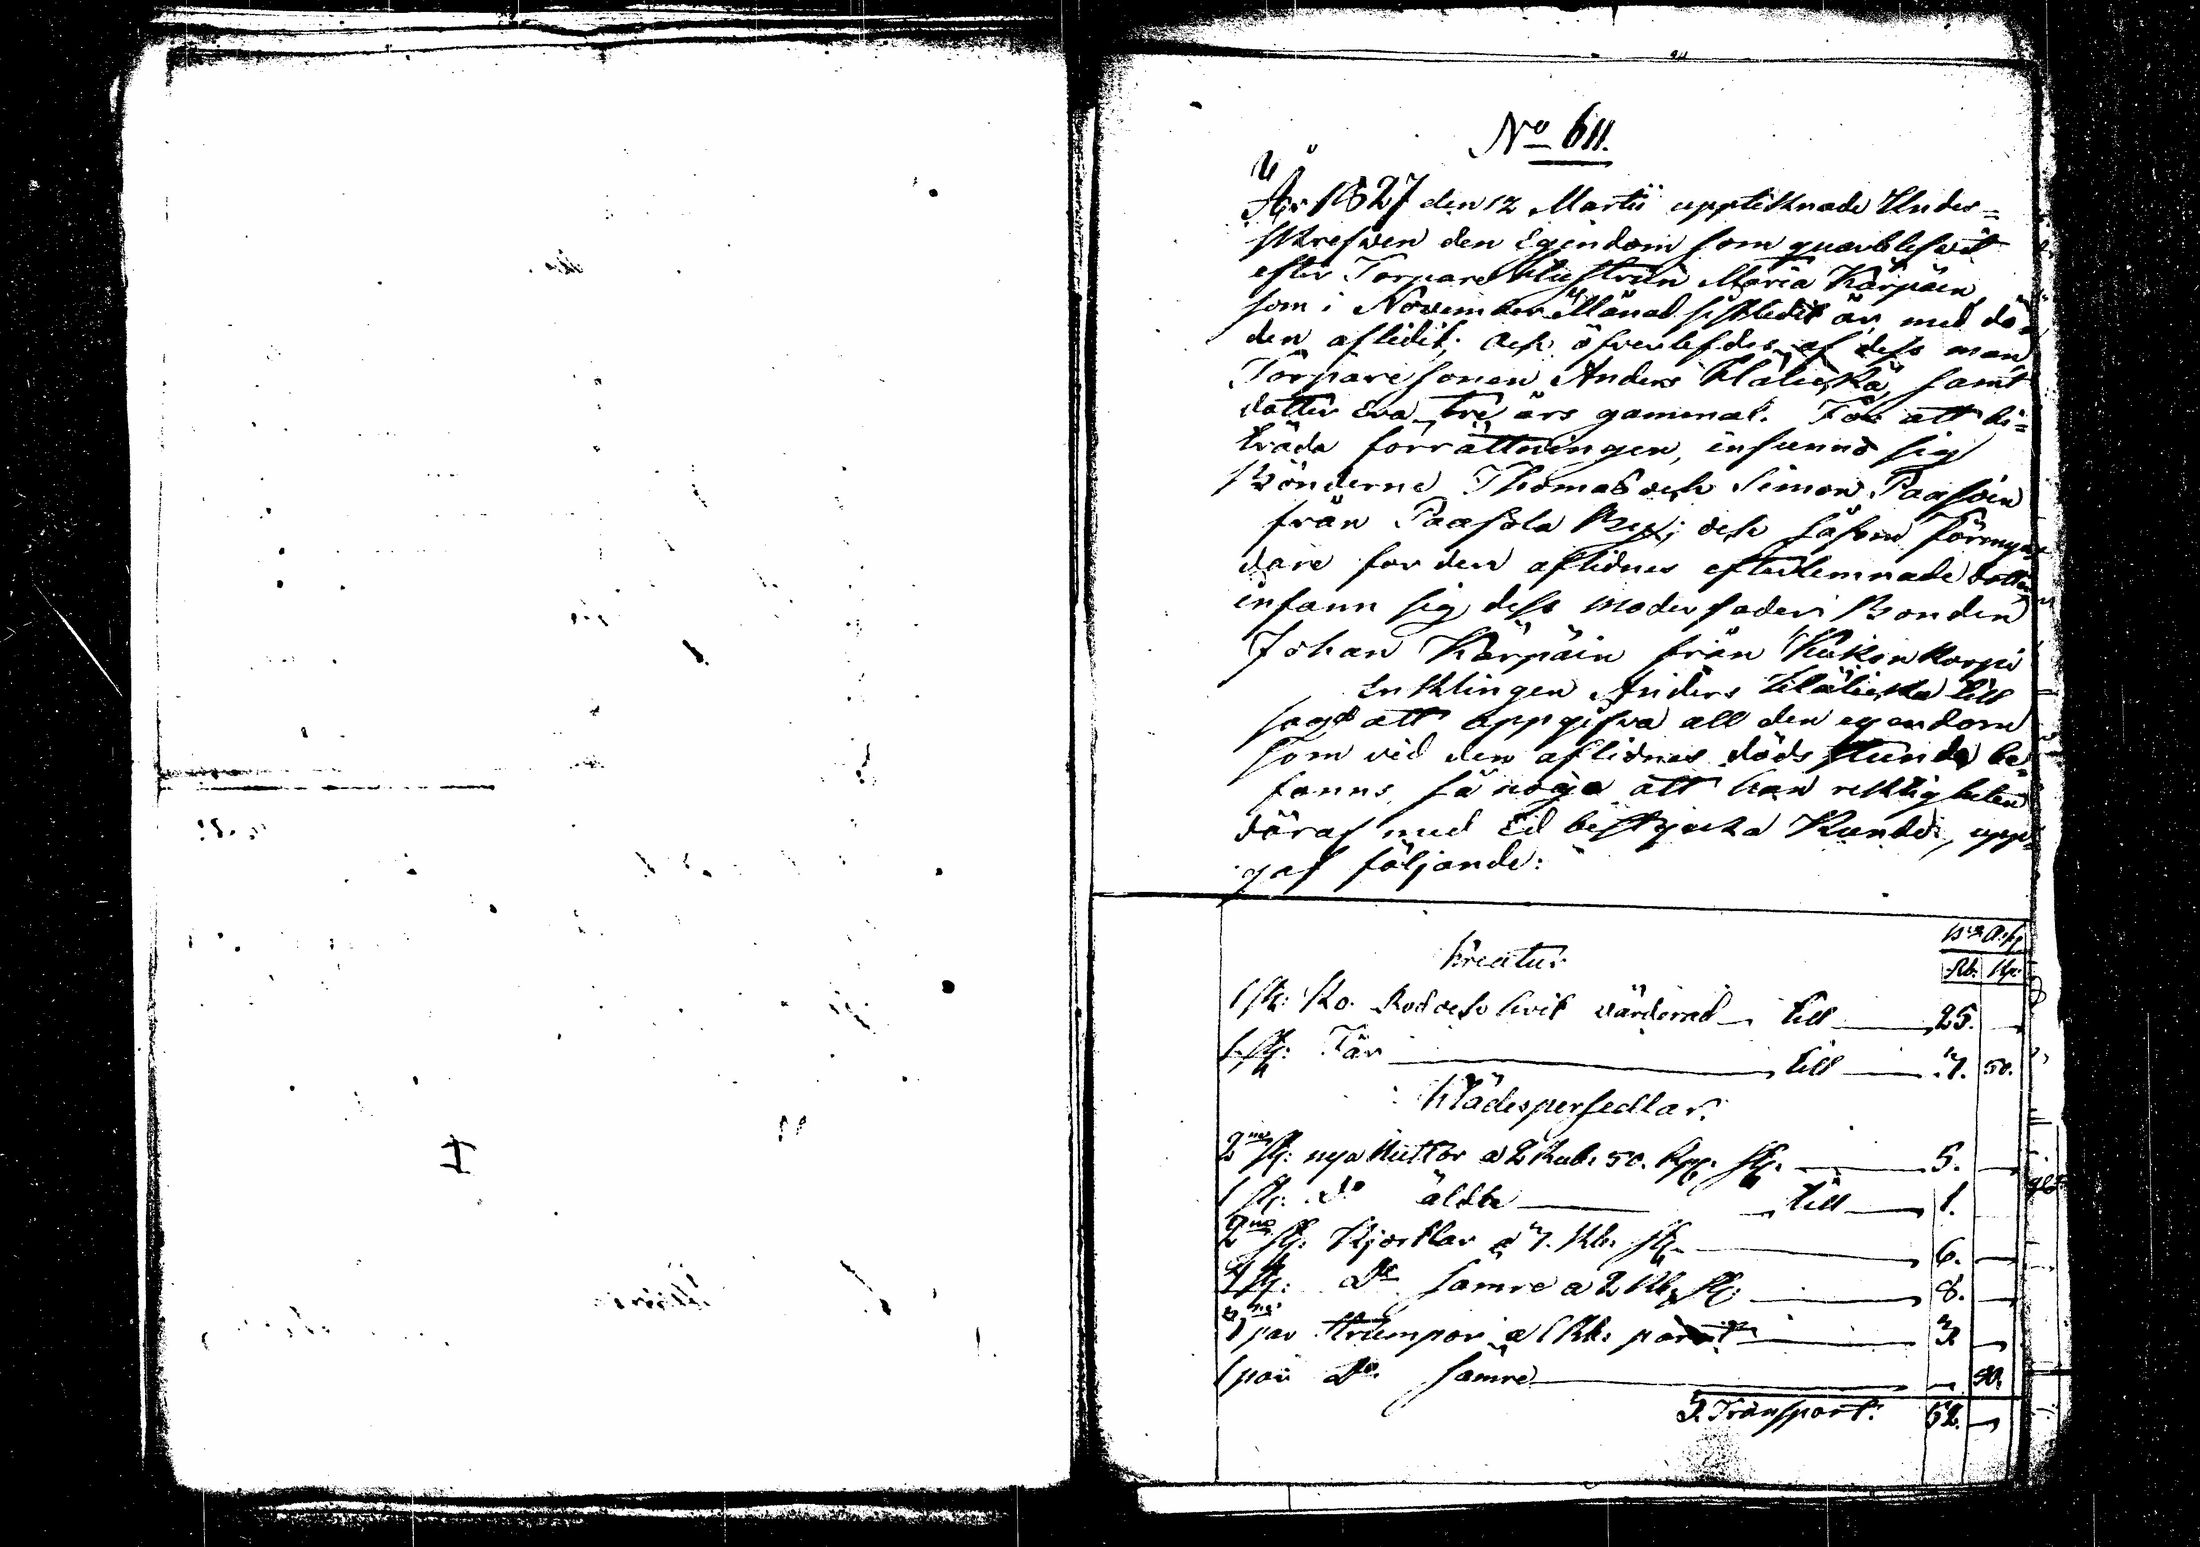 No 611.
År 1827 den 12 Martii uppteknade Under=
skrefven den Egendom som quarblefvit
efter Torpare Hustrun Maria Kärpäin
som i November Månad sistledit år med dö=
den aflidit; och öfverlefdes af dess man
Torpare sonen Anders samt
dotter Eva tre års gammal. För att bi=
träda förrättningen, infunno sig
Bönderne Thomas och Simon Paasoin
från Paasola By; och såsom Förmyn=
dare for den aflidnes efterlemnade dotter
infann sig dess moderfader Bonden
Johan Kärpäin från Kukonkorpi
Enklingen Anders till
sagd att uppgifva all den egendom
som vid den aflidnes döds stund be=
fanns, så noga att han riktigheten
däraf med Ed bestyrka kunde, upp=
gaf följande:
Kreatur
Rb. Kp.
1 st: Ko Röd och hvit värderad till 25.
st: Får till 3. 50.
Klädespersedlar.
2ne st: nya Kiuttor a 2 Rub. 50. Kpk. st. 5.
1 st: do äldre till 1.
2ne st: Kjortlar a 3. Rb. st. 6.
4 st: Do sämre a 2 Rb. st: 8.
3ne par strumpor a 1 Rb. paret 3
1 par Do sämre 50.
Transport. 52.